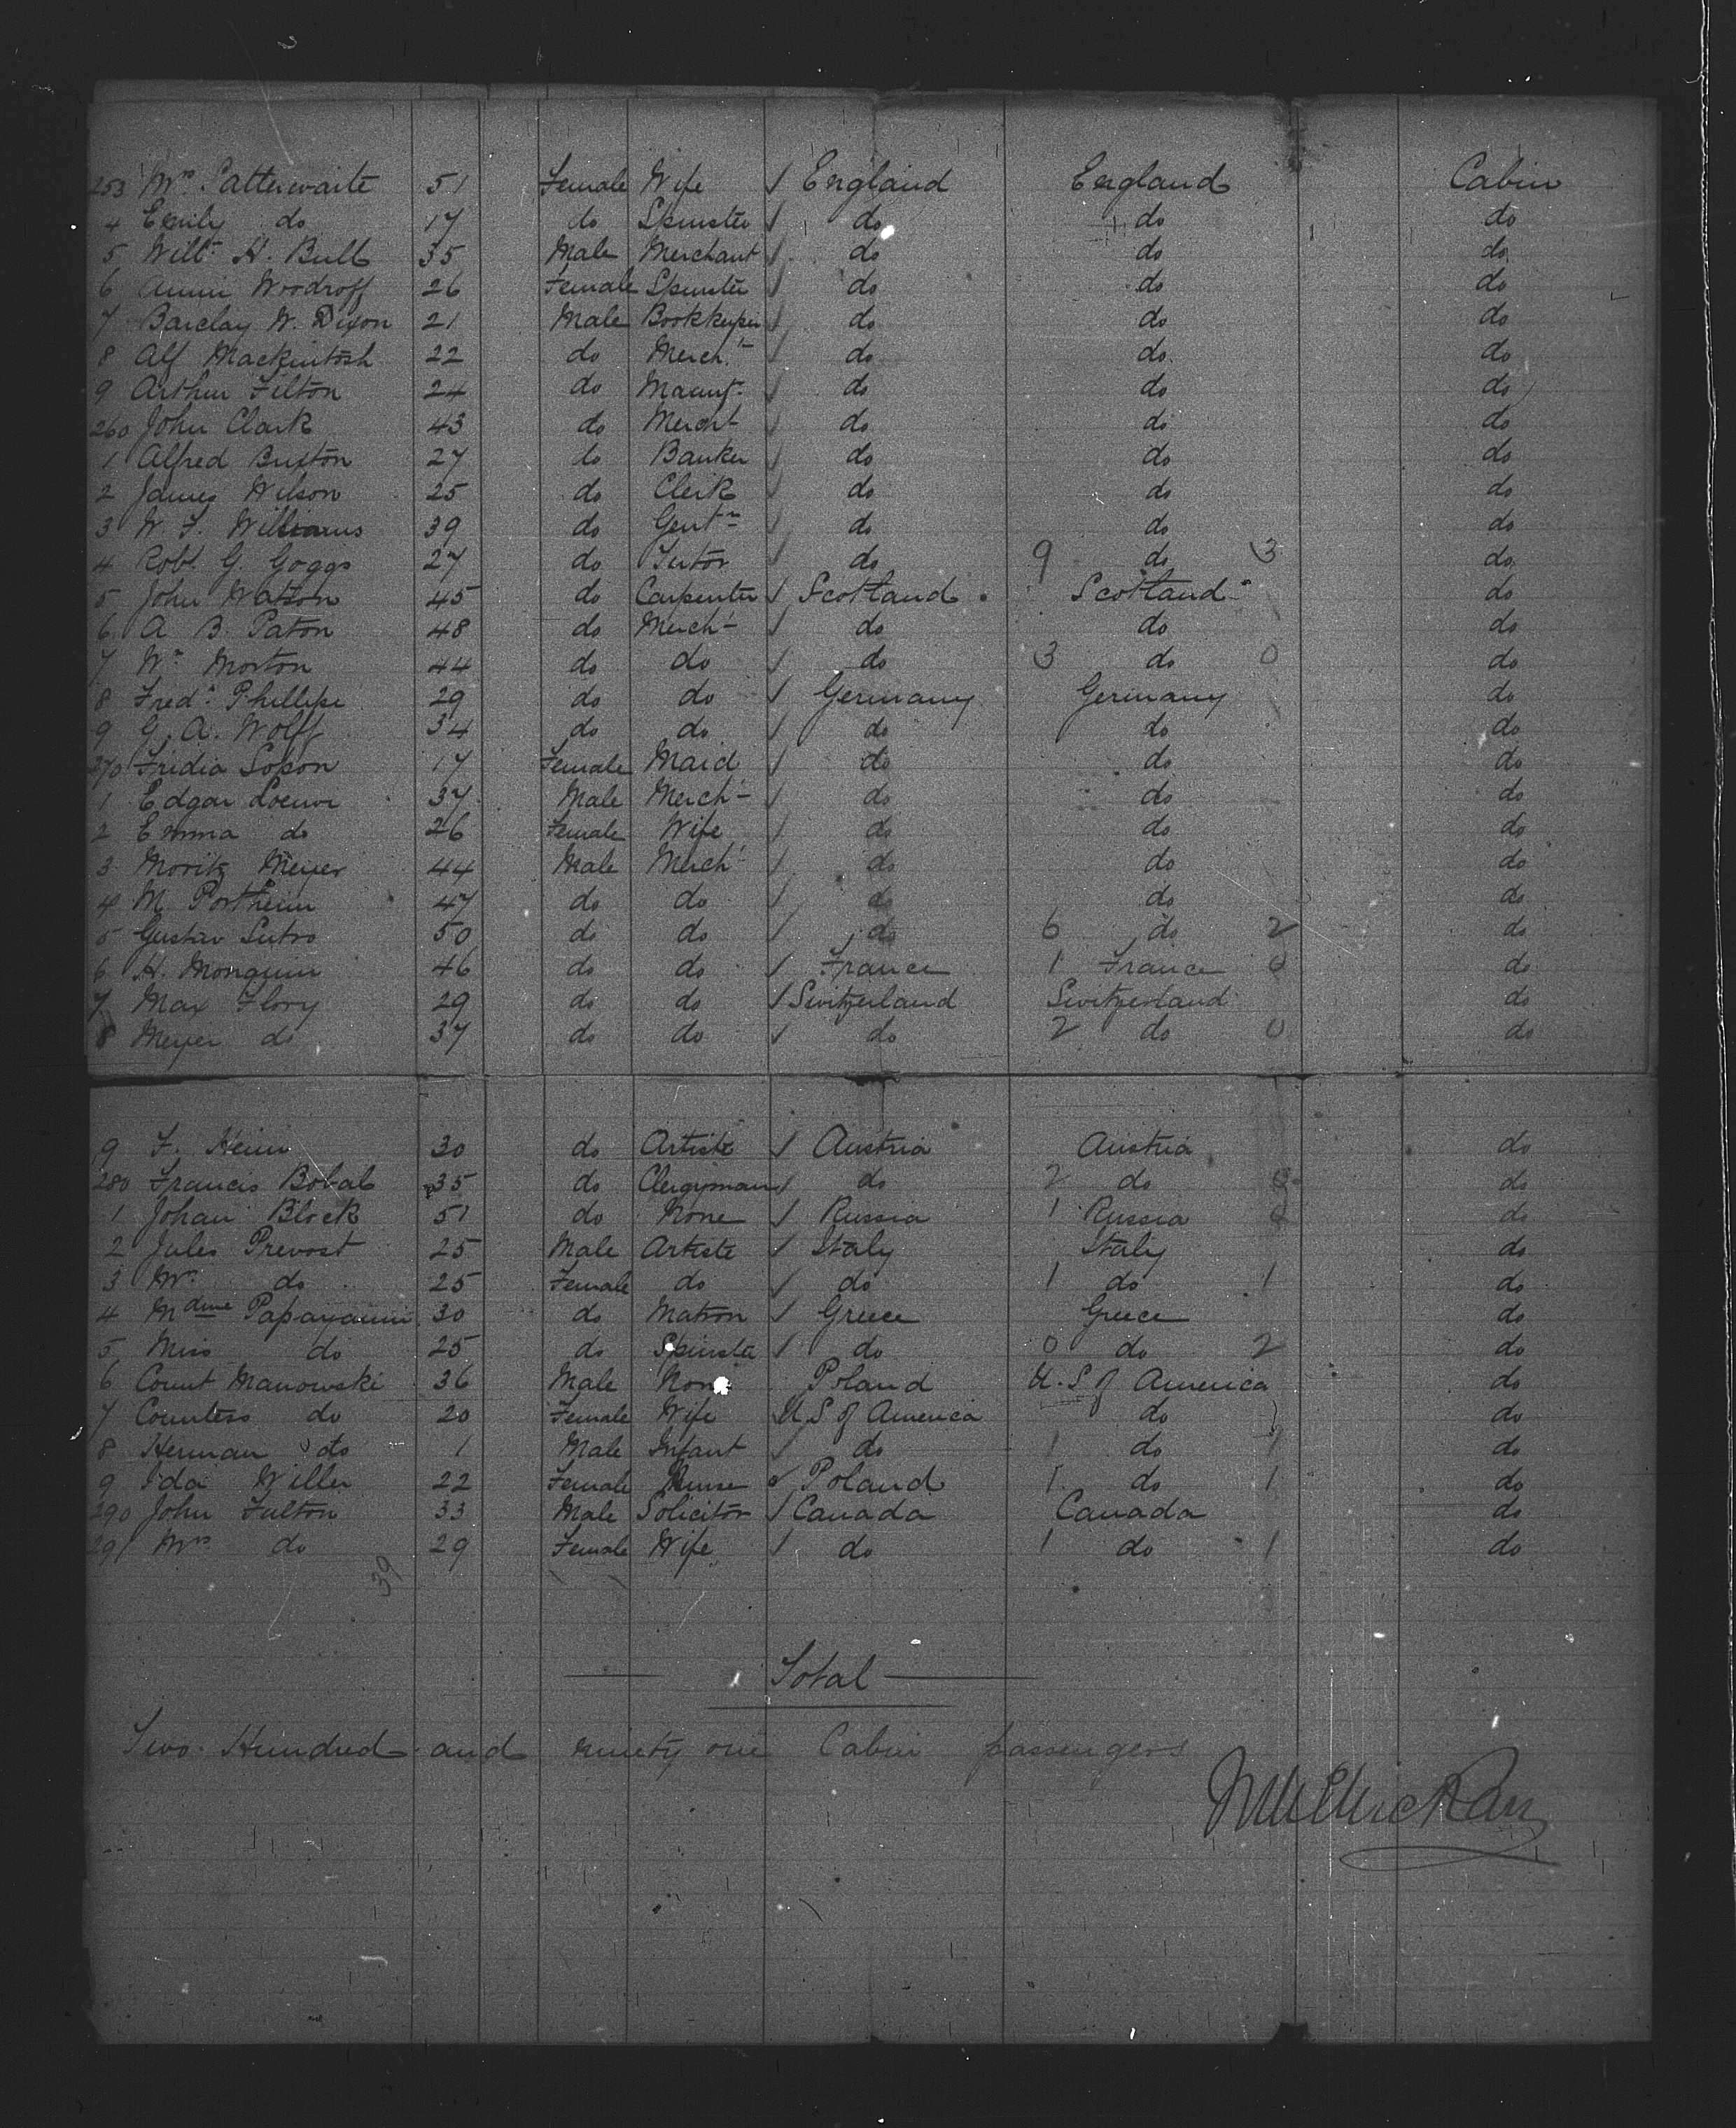 253 Mrs. Satterwaite 51 Female Wife / England England Cabin
4 Emily do 17 do Spinster / do do do
5 Willm H. Bull 35 Male Merchant / do do do
6 Annie Woodroff 26 Female Spinster / do do do
7 Barclay W. Dixon 21 Male Bookkeeper / do do do
8 Alf Mackintosh 22 do Mercht / do do do
9 Arthur Filton 24 do Manuf / do do do
260 John Clark 43 do Mercht / do do do
1 Alfred Buxton 27 do Banker / do do do
2 James Wilson 25 do Clerk / do do do
3 W F. Williams 39 do Gentn / do do do
4 Robt. G. Goggs 27 do Tutor / do 9 do 3 do
5 John Watson 45 do Carpenter / Scotland Scotland do
6 A B. Paton 48 do Merch / do do do
7 Wm Morton 44 do do / do 3 do 0 do
8 Fredk Phillips 29 do do / Germany Germany do
9 G. A. Wolff 34 do do / do do do
270 Fridia 17 Female Maid / do do do
1 Edgar Loewe 37 Male Merch / do do do
2 Emma do 26 Female Wife / do do do
3 Moritz Meyer 44 Male Merch / do do do
4 M. Portheim 47 do do / do do do
5 Gustav Sutro 50 do do / do 6 do 2 do
6 H. Monquin 46 do do / France 1 France 0 do
7 Max Flory 29 do do / Switzerland Switzerland do
8 Meyer do 37 do do / do 2 do 0 do
9 F. Heim 30 do Artiste / Austria Austria do
280 Francis Bobal 35 do Clergyman / do 2 do 0 do
1 Johan Block 51 do None / Russia 1 Russia 0 do
2 Jules Prevost 25 Male Artiste / Italy Italy do
3 Mrs do 25 Female do / do 1 do 1 do
4 Mdme Papayanni 30 do Matron / Greece Greece do
5 Miss do 25 do Spinster / do 0 do 2 do
6 Count Manowski 36 Male None Poland U.S of America do
7 Countess do 20 Female Wife U.S of America do do
8 Herman do 1 Male Infant / do 1 do 1 do
9 Ida Willer 22 Female Nurse Poland 1 do 1 do
290 John Fulton 33 Male Solicitor / Canada Canada do
291 Mrs do 29 Female Wife / do 1 do 1 do
39
Total
Two Hundred and ninety one Cabin passengers